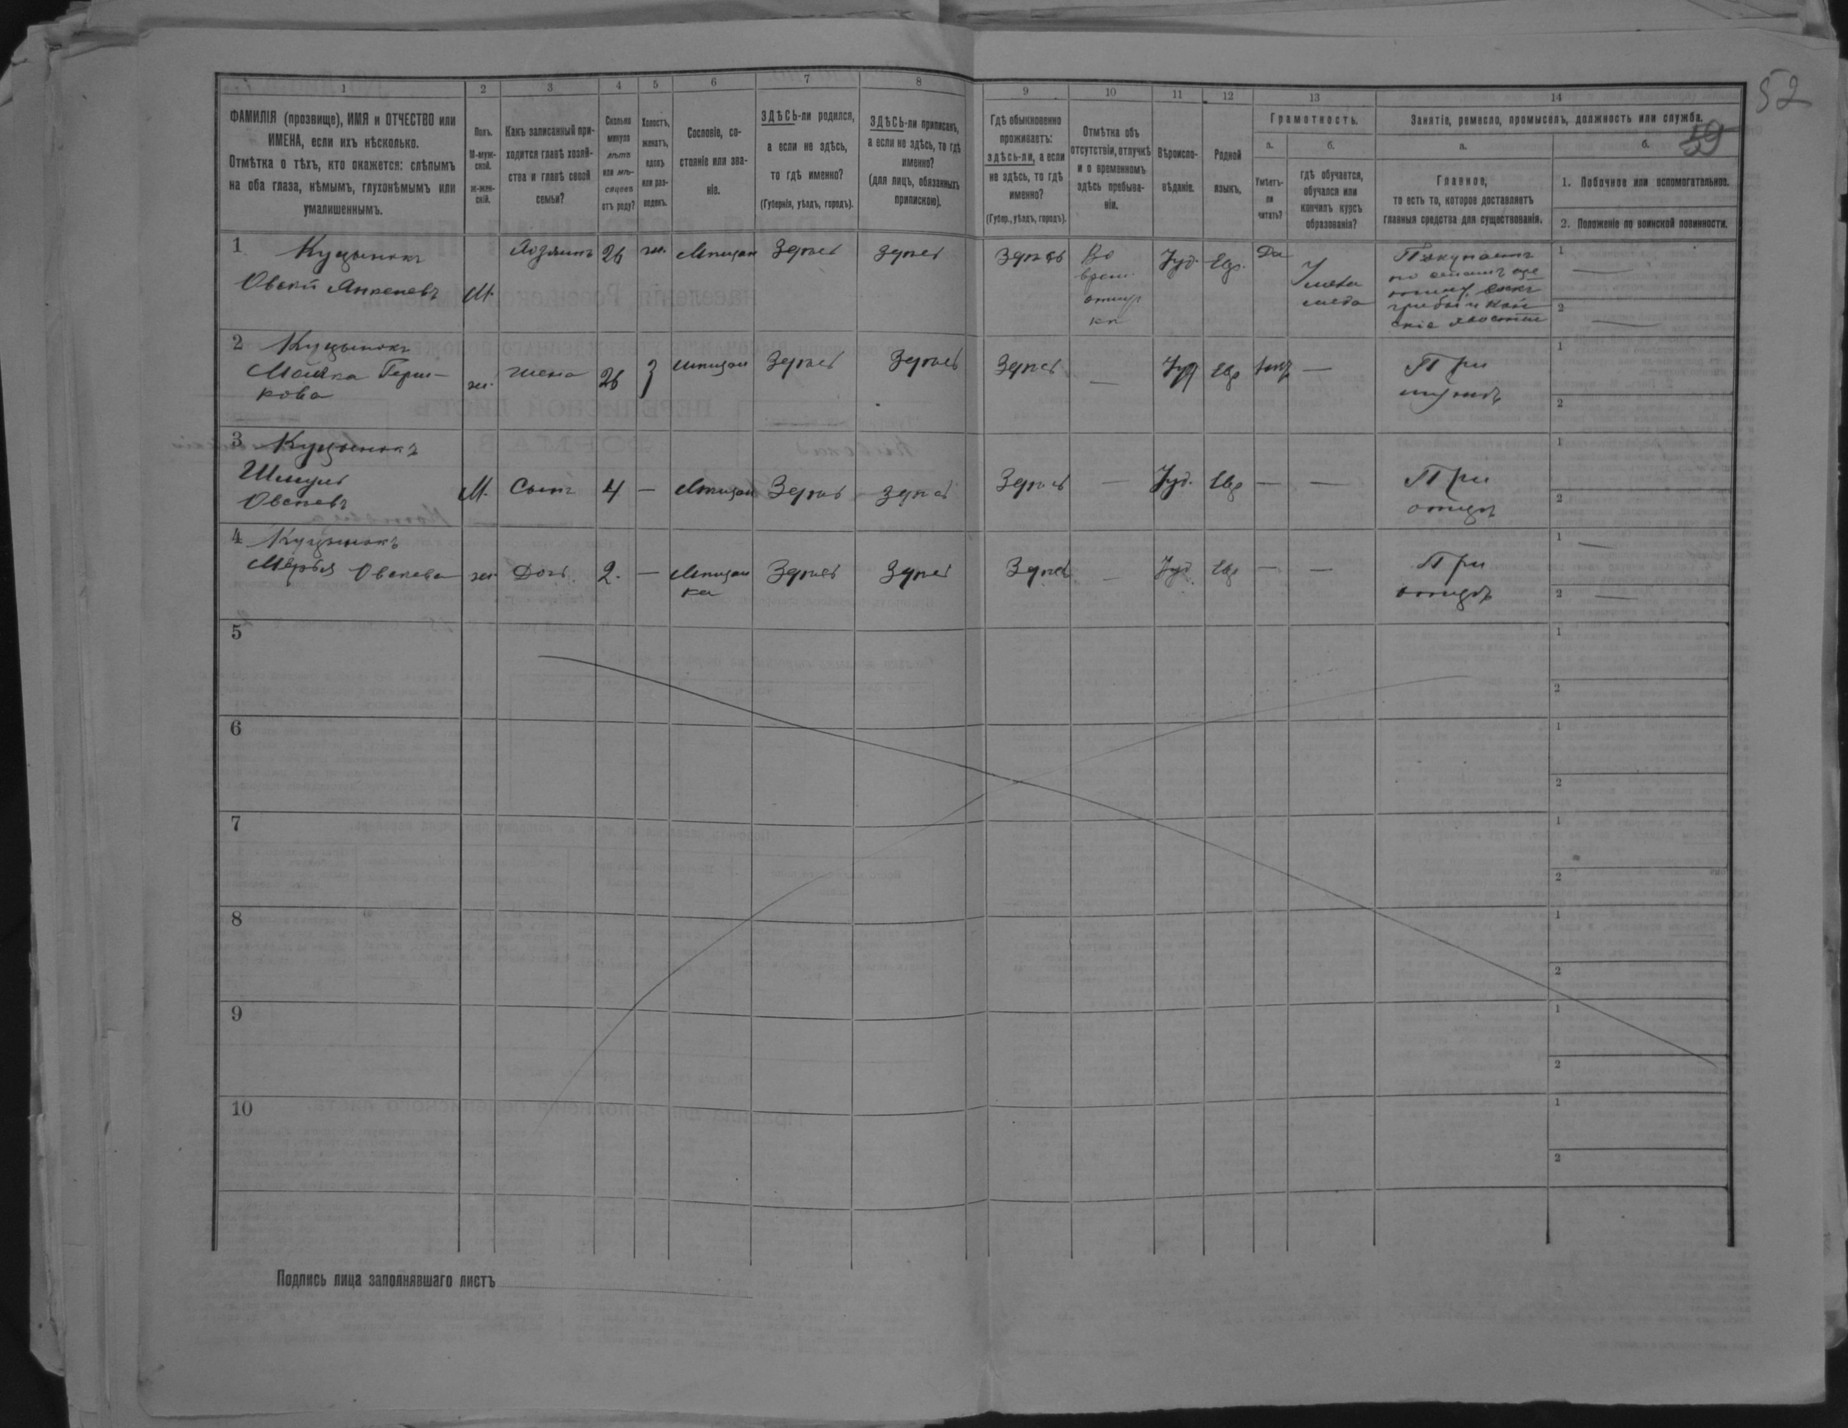 52
59
1 2 3 4 5 6 7 8 9 10 11 12 13 14
ФАМИЛІЯ (прозвище), ИМЯ и ОТЧЕСТВО или
ИМЕНА, если ихъ нѣсколько.
Отмѣтка о тѣхъ, кто окажется: слѣпымъ
на оба глаза, нѣмымъ, глухонѣмымъ или
умалишеннымъ.
Полъ.
М-муж-
ской.
ж-жен-
скій.
Какъ записанный при-
ходится главѣ хозяй-
ства и главѣ своей
семьи?
Сколько
минуло
лѣтъ
или мѣ-
сяцевъ
отъ роду?
Холостъ,
женатъ,
вдовъ
или раз-
веденъ.
Сословіе, со-
стояніе или зва-
ніе.
ЗДѢСЬ-ли родился,
а если не здѣсь,
то гдѣ именно?
(Губернія, уѣздъ, городъ).
ЗДѢСЬ-ли приписанъ,
а если не здѣсь, то гдѣ
именно?
(для лицъ, обязанныхъ
припискою).
Гдѣ обыкновенно
проживаетъ:
здѣсь-ли, а если
не здѣсь, то гдѣ
именно?
(Губер., уѣздъ, городъ).
Отмѣтка объ
отсутствіи, отлучкѣ
и о временномъ
здѣсь пребыва-
ніи.
Вѣроиспо-
вѣданіе.
Родной
языкъ.
Грамотность.
а.
Умѣетъ-
ли
читать?
б.
гдѣ обучается,
обучался или
кончилъ курсъ
образованія?
Занятіе, ремесло, промыселъ, должность или служба.
а.
Главное,
то есть то, которое доставляетъ
главныя средства для существованія.
б.
1. Побочное или вспомогательное.
2. Положеніе по воинской повинности.
1 Куцынокъ
Овсей Янкелевъ М. Хозяинъ 26 ж. Мѣщан Здѣсь Здѣсь Здѣсь Во
врем.
отлуч
кѣ Іуд. Евр. Да У
мела
меда
1 —
2 —
2 Куцынокъ
Герш-
кова ж. жена 26 З мѣщан Здѣсь Здѣсь Здѣсь — Іуд Евр — При
мужѣ
1
2
3 Куцынокъ
Шмуль
Овсеевъ М. Сынъ 4 — Мѣщан Здѣсь Здѣсь Здѣсь — Іуд. Евр — — При
отцѣ
1
2
4 Куцынокъ
Овсеева ж. Дочь. 2. — Мѣщан
ка Здѣсь Здѣсь Здѣсь — Іуд. Евр — — При
отцѣ
1 —
2 —
5 1
2
6 1
2
7 1
2
8 1
2
9 1
2
10 1
2
Подпись лица заполнявшаго листъ